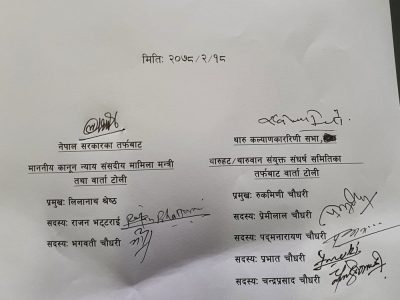 मितिः २०७८/२/१८
नेपाल सरकारका तर्फबाट
माननीय कानून न्याय संसदीय मामिला मन्त्री
तथा वार्ता टोली
प्रमुखः लिलानाथ श्रेष्ठ
सदस्यः राजन भट्टराई
सदस्यः भगवती चौधरी
थारु कल्याणकारिणी सभा,
थारुहट/थारुवान संयुक्त संघर्ष समितिका
तर्फबाट वार्ता टोली
प्रमुखः रुकमिणी चौधरी
सदस्यः प्रेमीलाल चौधरी
सदस्यः पद्मनारायण चौधरी
सदस्यः प्रभात चौधरी
सदस्यः चन्द्रप्रसाद चौधरी